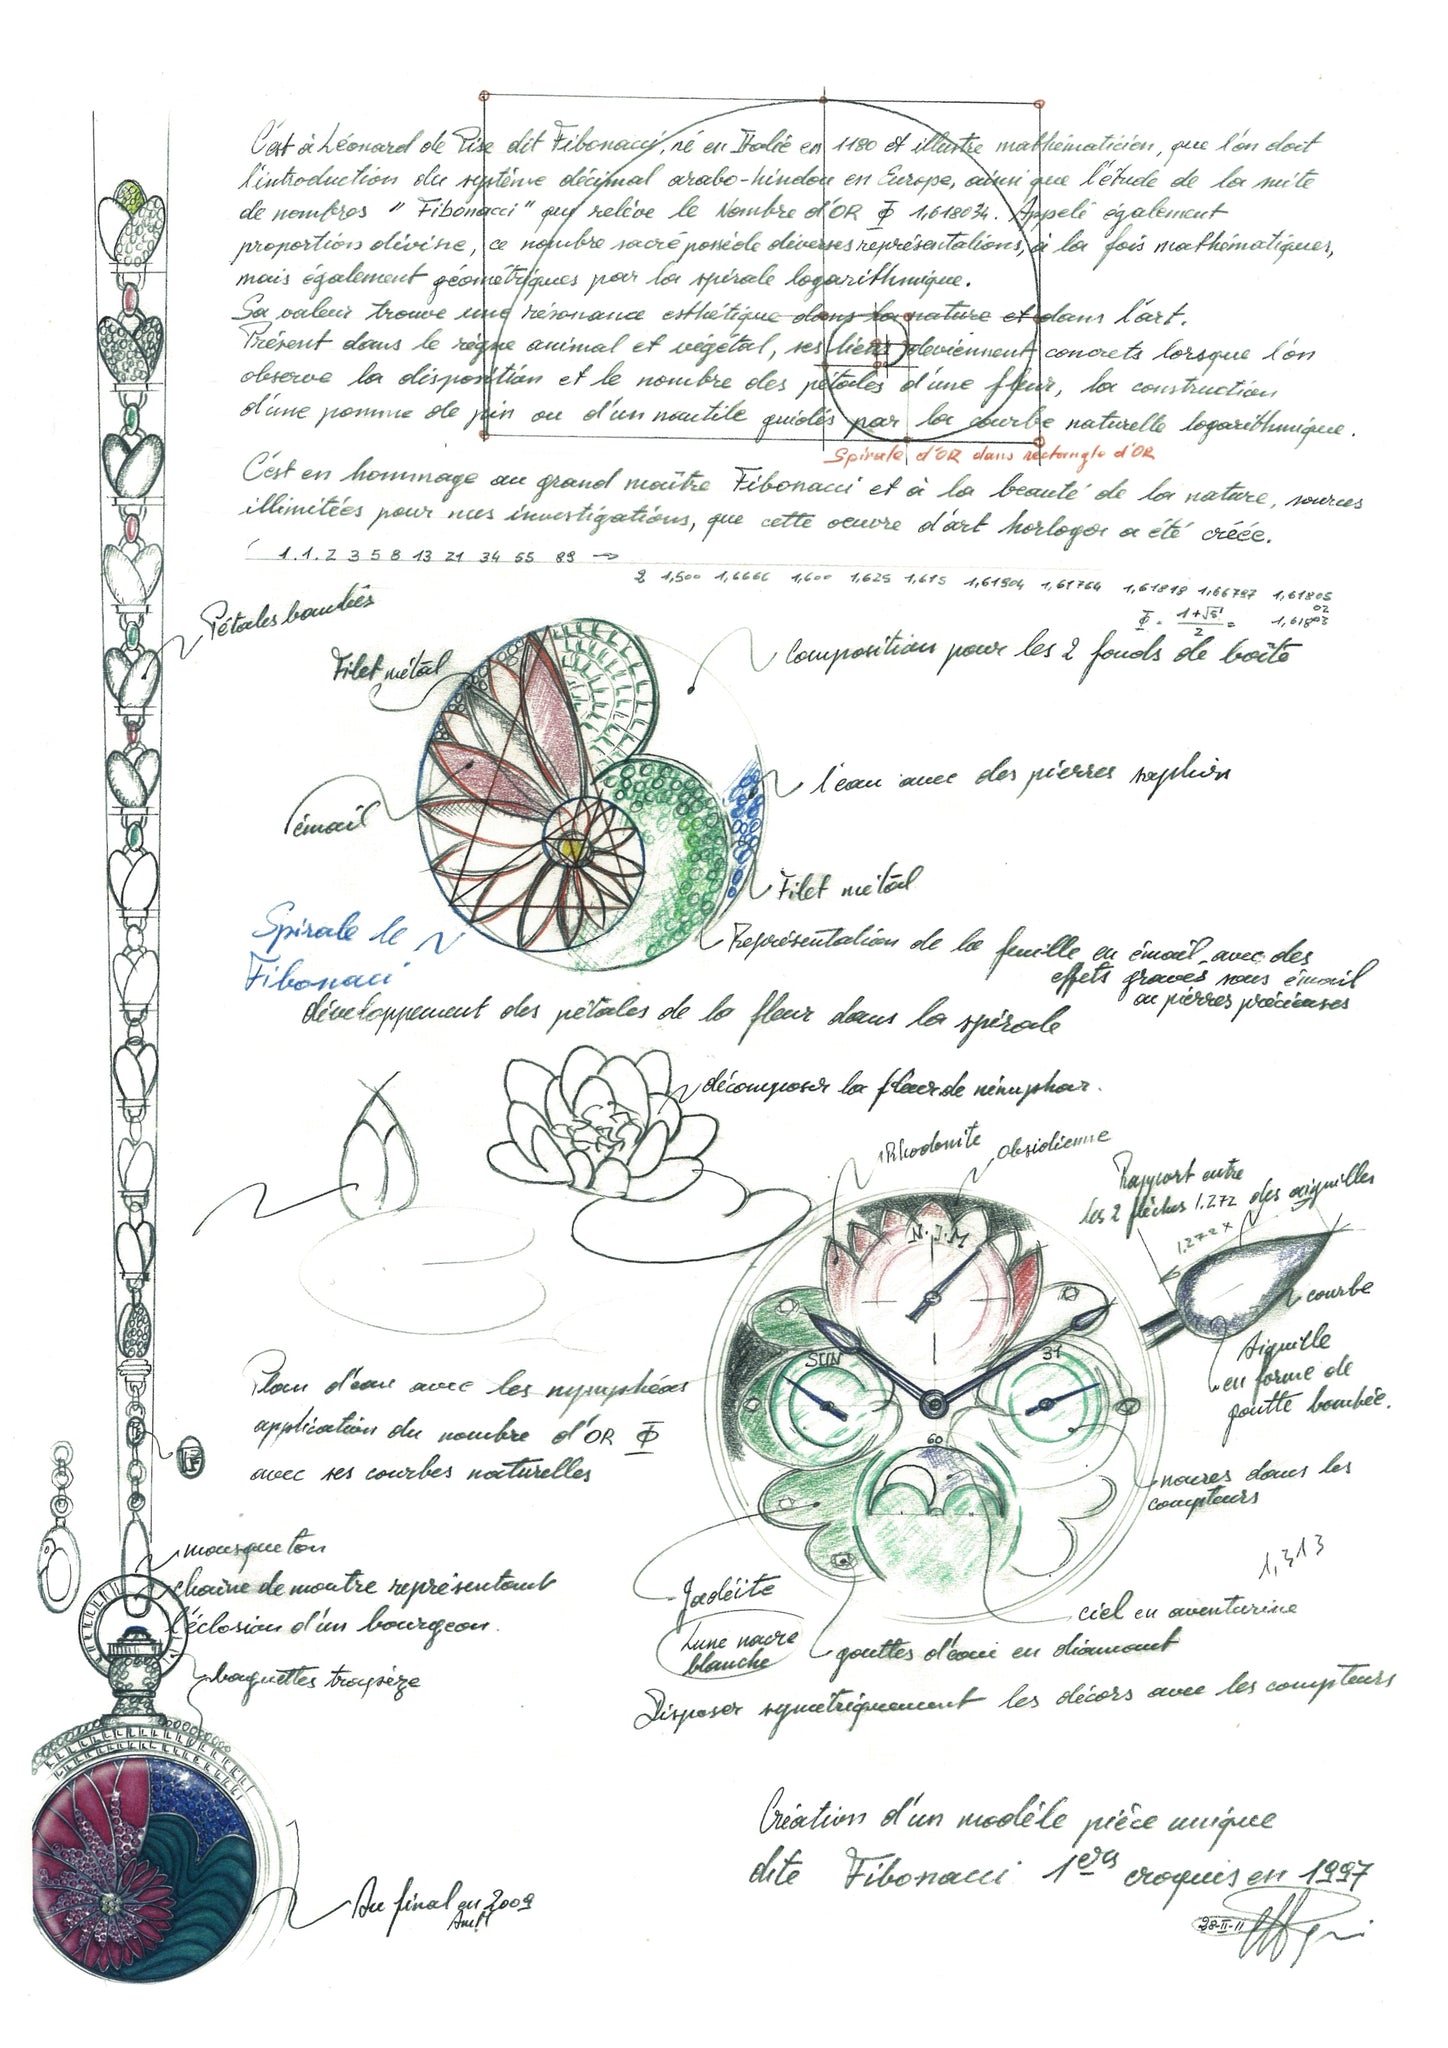 C'est à Léonard de Pise dit Fibonacci, né en Italie en 1180 et illustre mathématicien, que l'on doit
l'introduction du système décimal arabo-hindou en Europe, ainsi que l'étude de la suite
de nombres " Fibonacci " qui relève le Nombre d'OR Φ 1,618034. Appelé également
proportion divine, ce nombre sacré possède diverses représentations, à la fois mathématiques,
mais également géométriques par la spirale logarithmique.
Sa valeur trouve une résonance esthétique dans la nature et dans l'art.
Présent dans le règne animal et végétal, ses liens deviennent concrets lorsque l'on
observe la disposition et le nombre des pétales d'une fleur, la construction
d'une pomme de pin ou d'un nautile guidés par la courbe naturelle logarithmique.
Spirale d'OR dans rectangle d'OR
C'est en hommage au grand maître Fibonacci et à la beauté de la nature, sources
illimitées pour mes investigations, que cette oeuvre d'art horloger a été créée.
1.1.2 3 5 8 13 21 34 55 89 →
2 1,500 1,6666 1,600 1,625 1,615 1,61904 1,61764 1,61818 1,66797 1,61805
Φ = 1+√5 / 2 =
Pétales bombés
Filet métal
Composition pour les 2 fonds de boîte
l'eau avec des pierres saphirs
émail
Filet métal
Spirale de
Fibonacci
Représentation de la feuille en émail avec des
effets gravés sous émail
ou pierres précieuses
développement des pétales de la fleur dans la spirale
décomposer la fleur de nénuphar.
Rhodonite
obsidienne
Rapport entre
les 2 flèches 1.272 des aiguilles
1.272 x
N.J.M
courbe
Aiguille
en forme de
goutte bombée.
SUN
31
60
Plan d'eau avec les nymphéas
application du nombre d'OR Φ
avec ses courbes naturelles
nacres dans les
compteurs
1,313
mousqueton
chaîne de montre représentant
l'éclosion d'un bourgeon.
baguettes trapèze
Jadéite
Lune nacre
blanche
ciel en aventurine
gouttes d'eau en diamant
Disposer symétriquement les décors avec les compteurs
Création d'un modèle pièce unique
dite Fibonacci 1ers croquis en 1997
28-II-11
Au final en 2009